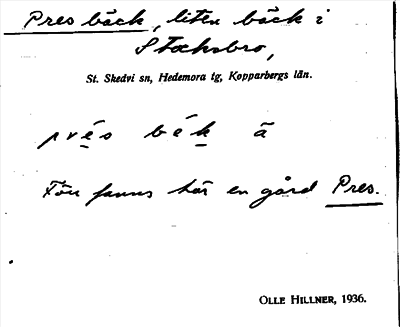 Pres bäck, liten bäck i
Stocksbro,
St. Skedvi sn, Hedemora tg, Kopparbergs län.
prés bék
Förr fanns här en gård Pres.
OLLE HILLNER, 1936.